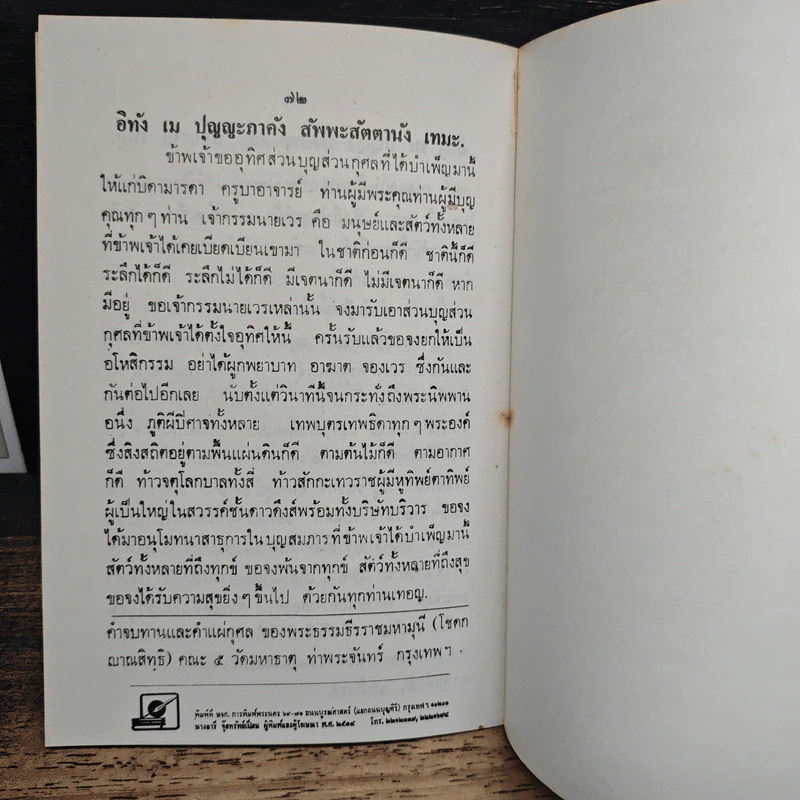 ๗๒
อิทัง เม ปุญญะภาคัง สัพพะสัตตานัง เทมะ.
ข้าพเจ้าขออุทิศส่วนบุญส่วนกุศลที่ได้บำเพ็ญมานี้
ให้แก่บิดามารดา ครูบาอาจารย์ ท่านผู้มีพระคุณท่านผู้มีบุญ
คุณทุกๆท่าน เจ้ากรรมนายเวร คือ มนุษย์และสัตว์ทั้งหลาย
ที่ข้าพเจ้าได้เคยเบียดเบียนเขามา ในชาติก่อนก็ดี ชาตินี้ก็ดี
ระลึกได้ก็ดี ระลึกไม่ได้ก็ดี มีเจตนาก็ดี ไม่มีเจตนาก็ดี หาก
มีอยู่ ขอเจ้ากรรมนายเวรเหล่านั้น จงมารับเอาส่วนบุญส่วน
กุศลที่ข้าพเจ้าได้ตั้งใจอุทิศให้นี้ ครั้นรับแล้วขอจงยกให้เป็น
อโหสิกรรม อย่าได้ผูกพยาบาท อาฆาต จองเวร ซึ่งกันและ
กันต่อไปอีกเลย นับตั้งแต่วินาทีนี้จนกระทั่งถึงพระนิพพาน
อนึ่ง ภูติผีปิศาจทั้งหลาย เทพบุตรเทพธิดาทุกๆพระองค์
ซึ่งสิงสถิตอยู่ตามพื้นแผ่นดินก็ดี ตามต้นไม้ก็ดี ตามอากาศ
ก็ดี ท้าวจตุโลกบาลทั้งสี่ ท้าวสักกะเทวราชผู้มีหูทิพย์ตาทิพย์
ผู้เป็นใหญ่ในสวรรค์ชั้นดาวดึงส์พร้อมทั้งบริษัทบริวาร ขอจง
ได้มาอนุโมทนาสาธุการในบุญสมภารที่ข้าพเจ้าได้บำเพ็ญมานี้
สัตว์ทั้งหลายที่ถึงทุกข์ ขอจงพ้นจากทุกข์ สัตว์ทั้งหลายที่ถึงสุข
ขอจงได้รับความสุขยิ่งๆขึ้นไป ด้วยกันทุกท่านเทอญ.
คำจบทานและคำแผ่กุศล ของพระธรรมธีรราชมหามุนี (โชดก
ญาณสิทธิ) คณะ ๕ วัดมหาธาตุ ท่าพระจันทร์ กรุงเทพฯ.
พิมพ์ที่ หจก. การพิมพ์พระนคร ๖๙-๗๑ ถนนบูรณศาสตร์ (แยกถนนบุญศิริ) กรุงเทพฯ ๑๐๒๐๐
ผู้พิมพ์ผู้โฆษณา พ.ศ. ๒๕๓๔ โทร.